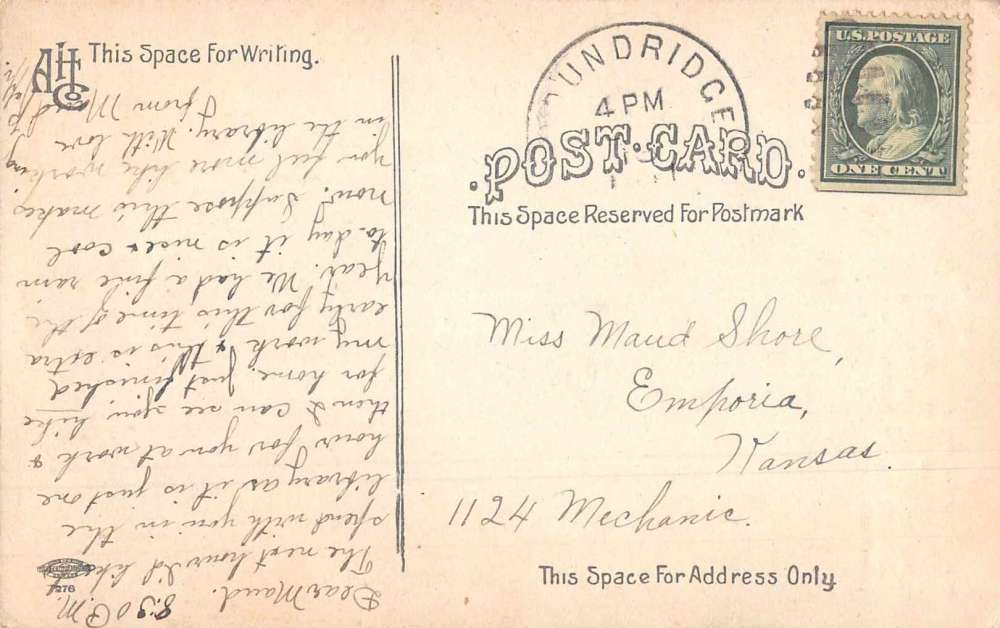 AHCo
This Space For Writing.
UNDRIDGE
4 PM
U.S. POSTAGE
ONE CENT
POST CARD
This Space Reserved For Postmark
Miss Maud Shore,
Emporia,
Kansas.
1124 Mechanic.
This Space For Address Only
7276
8:30 P.M.
Dear Maud.
The next hour I'd like
spend with you in the
library as it is just one
hour for you at work &
then I can see you hike
for home. Just finished
my work & this is extra
early for this time of the
year. We had a fine rain
to-day it is nice & cool
now. Suppose this makes
you feel more like working
in the library. With love
from Maud